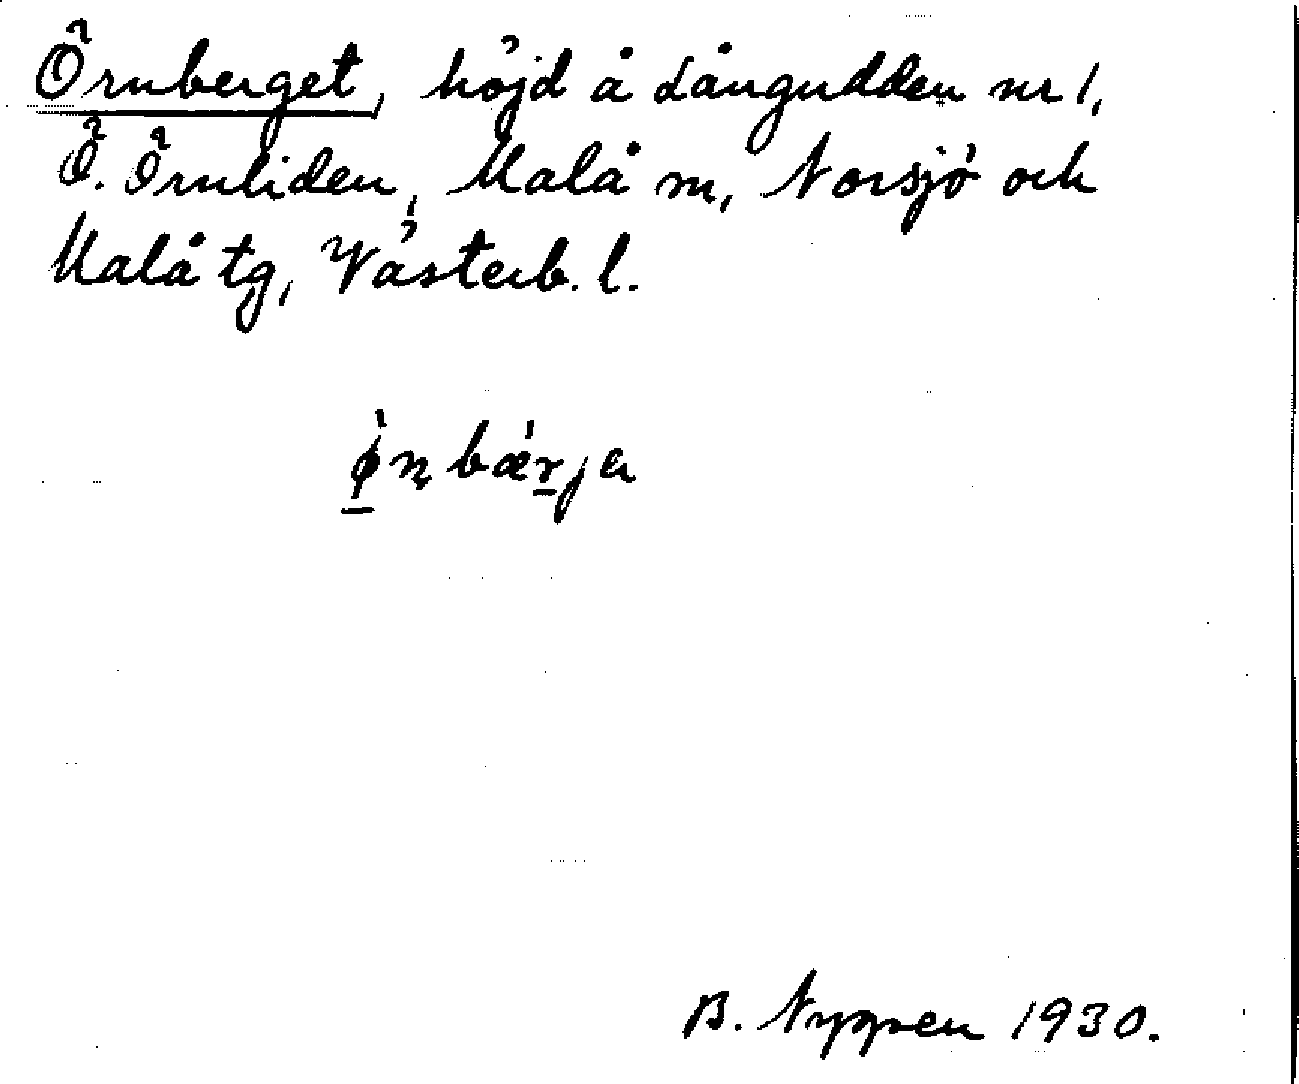 Örnberget, höjd å Långudden nr 1,
Ö. Örnliden, Malå sn, Norsjö och
Malå tg, Västerb. l.
ø̀ṇbǽrja
B. Nyman 1930.